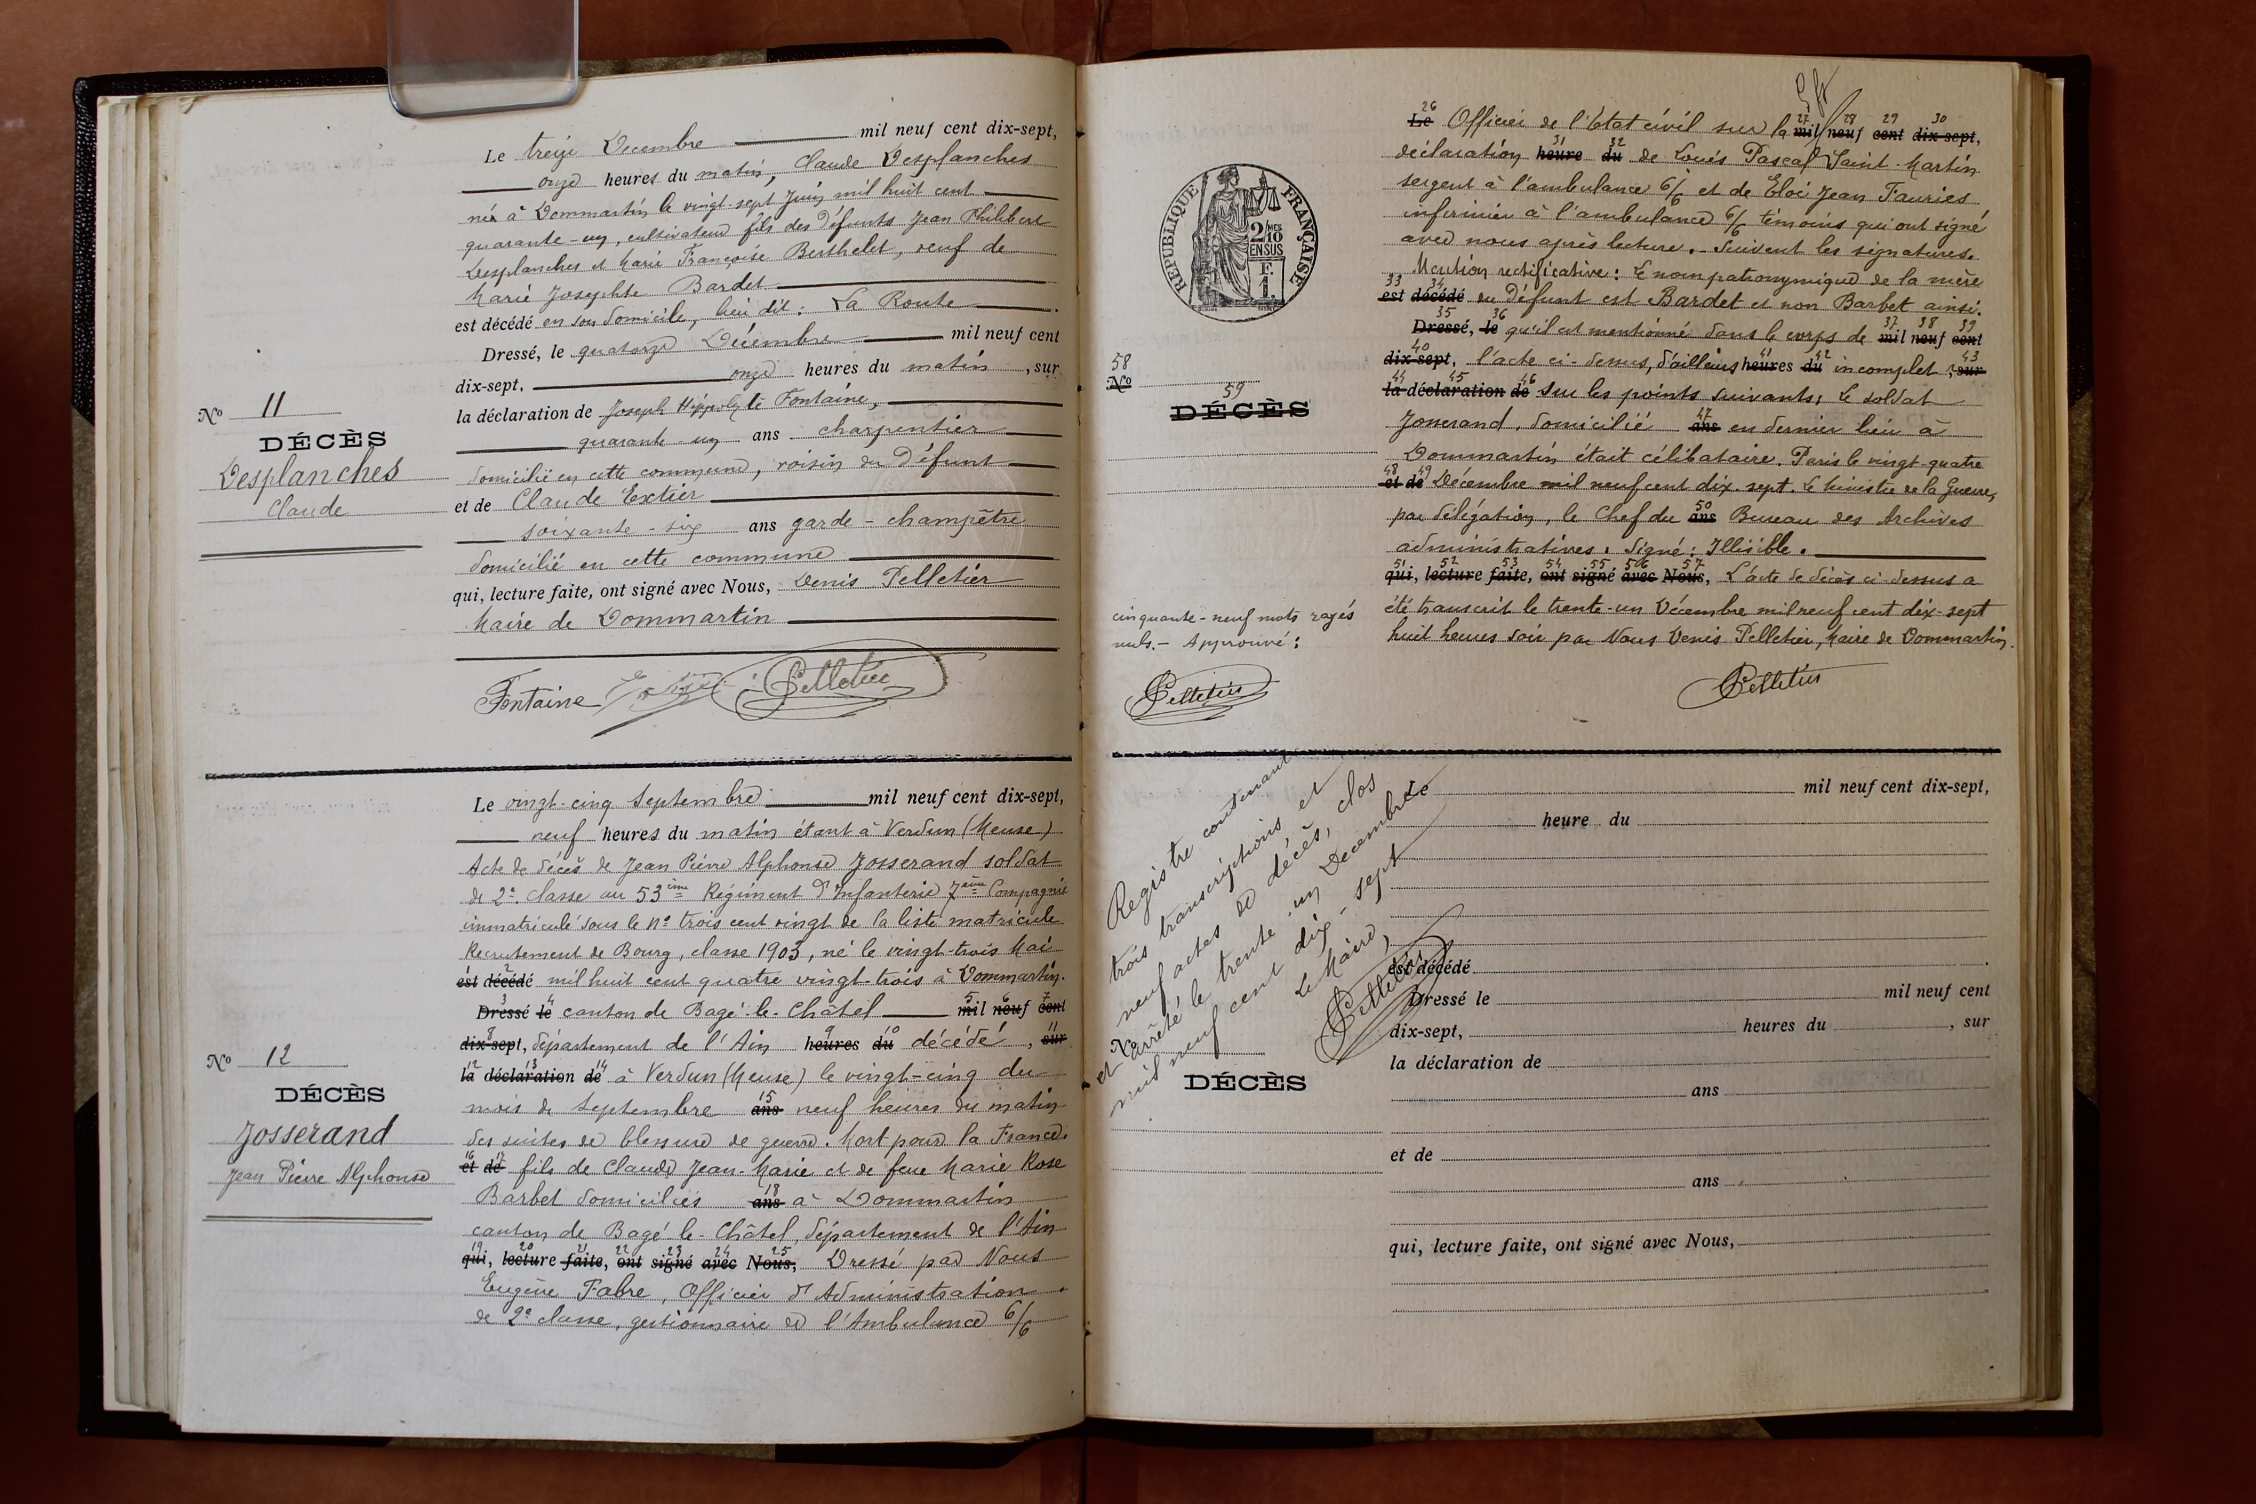 Le treize Decembre mil neuf cent dix-sept,
onze heures du matin, Claude Desplanches
né à Dommartin le vingt-sept Juin mil huit cent
quarante-un, cultivateur fils des Défunts Jean Philibert
Desplanches et Marie Françoise Berthelet, veuf de
Marie Josephte Bardet
est décédé en son domicile, lieu dit : La Route.
Dressé, le quatorze Décembre mil neuf cent
dix-sept, onze heures du matin, sur
la déclaration de Joseph Hippolyte Fontaine,
quarante-un ans charpentier
domicilié en cette commune, voisin du Défunt
et de Claude Extier
soixante-six ans garde-champêtre
domicilié en cette commune
qui, lecture faite, ont signé avec Nous, Denis Pelletier
Maire de Dommartin
Nº 11
DÉCÈS
Desplanches
Claude
Fontaine Pelletier
Le vingt-cinq Septembre mil neuf cent dix-sept,
neuf heures du matin étant à Verdun (Meuse)
Acte de décès de Jean Pierre Alphonse Josserand soldat
de 2e classe au 53ème Régiment d'Infanterie 7ème Compagnie
immatriculé sous le nº trois cent vingt de la liste matricule
Recrutement de Bourg, classe 1903, né le vingt-trois Mai
1 2
est décédé mil huit cent quatre vingt-trois à Dommartin.
3 4 5 6 7
Dressé le canton de Bagé-le-Châtel mil neuf cent
8 9 10 11
dix-sept, département de l'Ain heures du décédé, sur
12 13 14
la déclaration de à Verdun (Meuse) le vingt-cinq du
15
mois de Septembre ans neuf heures du matin
des suites de blessure de guerre. Mort pour la France.
16 17
et de fils de Claude Jean-Marie et de feue Marie Rose
18
Barbet domiciliés ans à Dommartin
canton de Bagé-le-Châtel, département de l'Ain
19 20 21 22 23 24 25
qui, lecture faite, ont signé avec Nous, Dressé par Nous
Eugène Fabre, Officier d'Administration
de 2e classe, gestionnaire de l'Ambulance 6/6
Nº 12
DÉCÈS
Josserand
Jean Pierre Alphonse
26 27 28 29 30
Le Officier de l'Etat civil sur la mil neuf cent dix-sept,
31 32
déclaration heure du de Louis Pascal Saint-Martin
sergent à l'ambulance 6/6 et de Eloi Jean Fauries
infirmier à l'ambulance 6/6 témoins qui ont signé
avec nous après lecture. Suivent les signatures.
Mention rectificative : le nom patronymique de la mère
33 34
est décédé du Défunt est Bardet et non Barbet ainsi
35 36 37 38 39
Dressé, le qu'il est mentionné dans le corps de mil neuf cent
40 41 42 43
dix-sept, l'acte ci-dessus, d'ailleurs heures du incomplet, sur
44 45 46
la déclaration de sur les points suivants, Le soldat
47
Josserand, domicilié ans en dernier lieu à
Dommartin était célibataire. Paris le vingt-quatre
48 49
et de Décembre mil neuf cent dix sept. Le Ministre de la Guerre,
50
par délégation, le Chef du ans Bureau des Archives
administratives. Signé : Illisible.
51 52 53 54 55 56 57
qui, lecture faite, ont signé avec Nous, L'acte de décès ci-dessus a
été transcrit le trente-un Décembre mil neuf cent dix-sept
huit heures soir par Nous Denis Pelletier, Maire de Dommartin.
Pelletier
REPUBLIQUE FRANÇAISE
2/10 MES
EN SUS
F.
1.
58
Nº
59
DÉCÈS
cinquante-neuf mots rayés
nuls. - Approuvé :
Pelletier
Registre contenant
trois transcriptions et
neuf actes de décès, clos
et arrêté le trente-un Decembre
mil neuf cent dix-sept
Le Maire,
Pelletier
Nº
DÉCÈS
Le mil neuf cent dix-sept,
heure du
est décédé
Dressé le mil neuf cent
dix-sept, heures du , sur
la déclaration de
ans
et de
ans
qui, lecture faite, ont signé avec Nous,